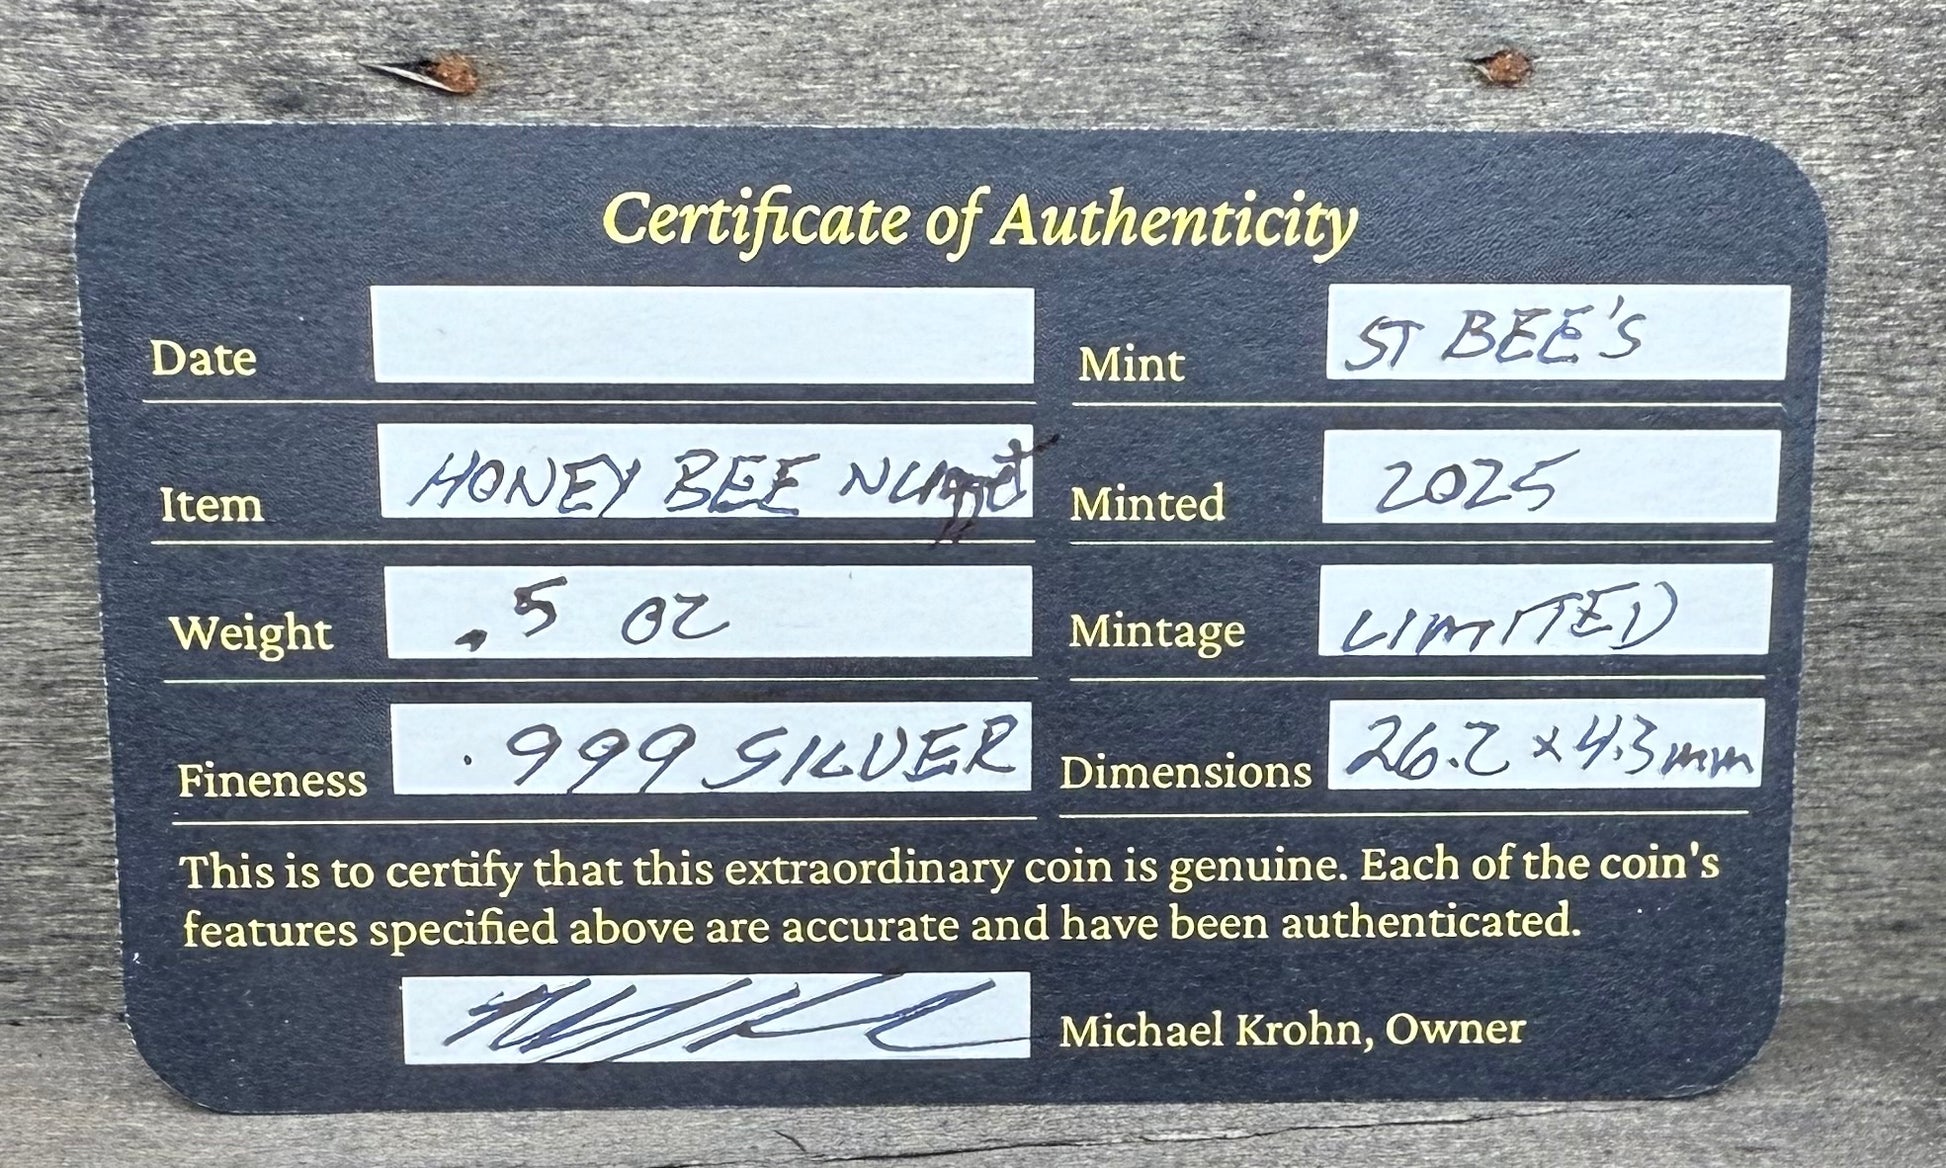 Certificate of Authenticity
Date
Mint ST BEE'S
Item HONEY BEE NUgget
Minted 2025
Weight .5 OZ
Mintage LIMITED
Fineness .999 SILVER
Dimensions 26.2 x 4.3mm
This is to certify that this extraordinary coin is genuine. Each of the coin's
features specified above are accurate and have been authenticated.
Michael Krohn, Owner